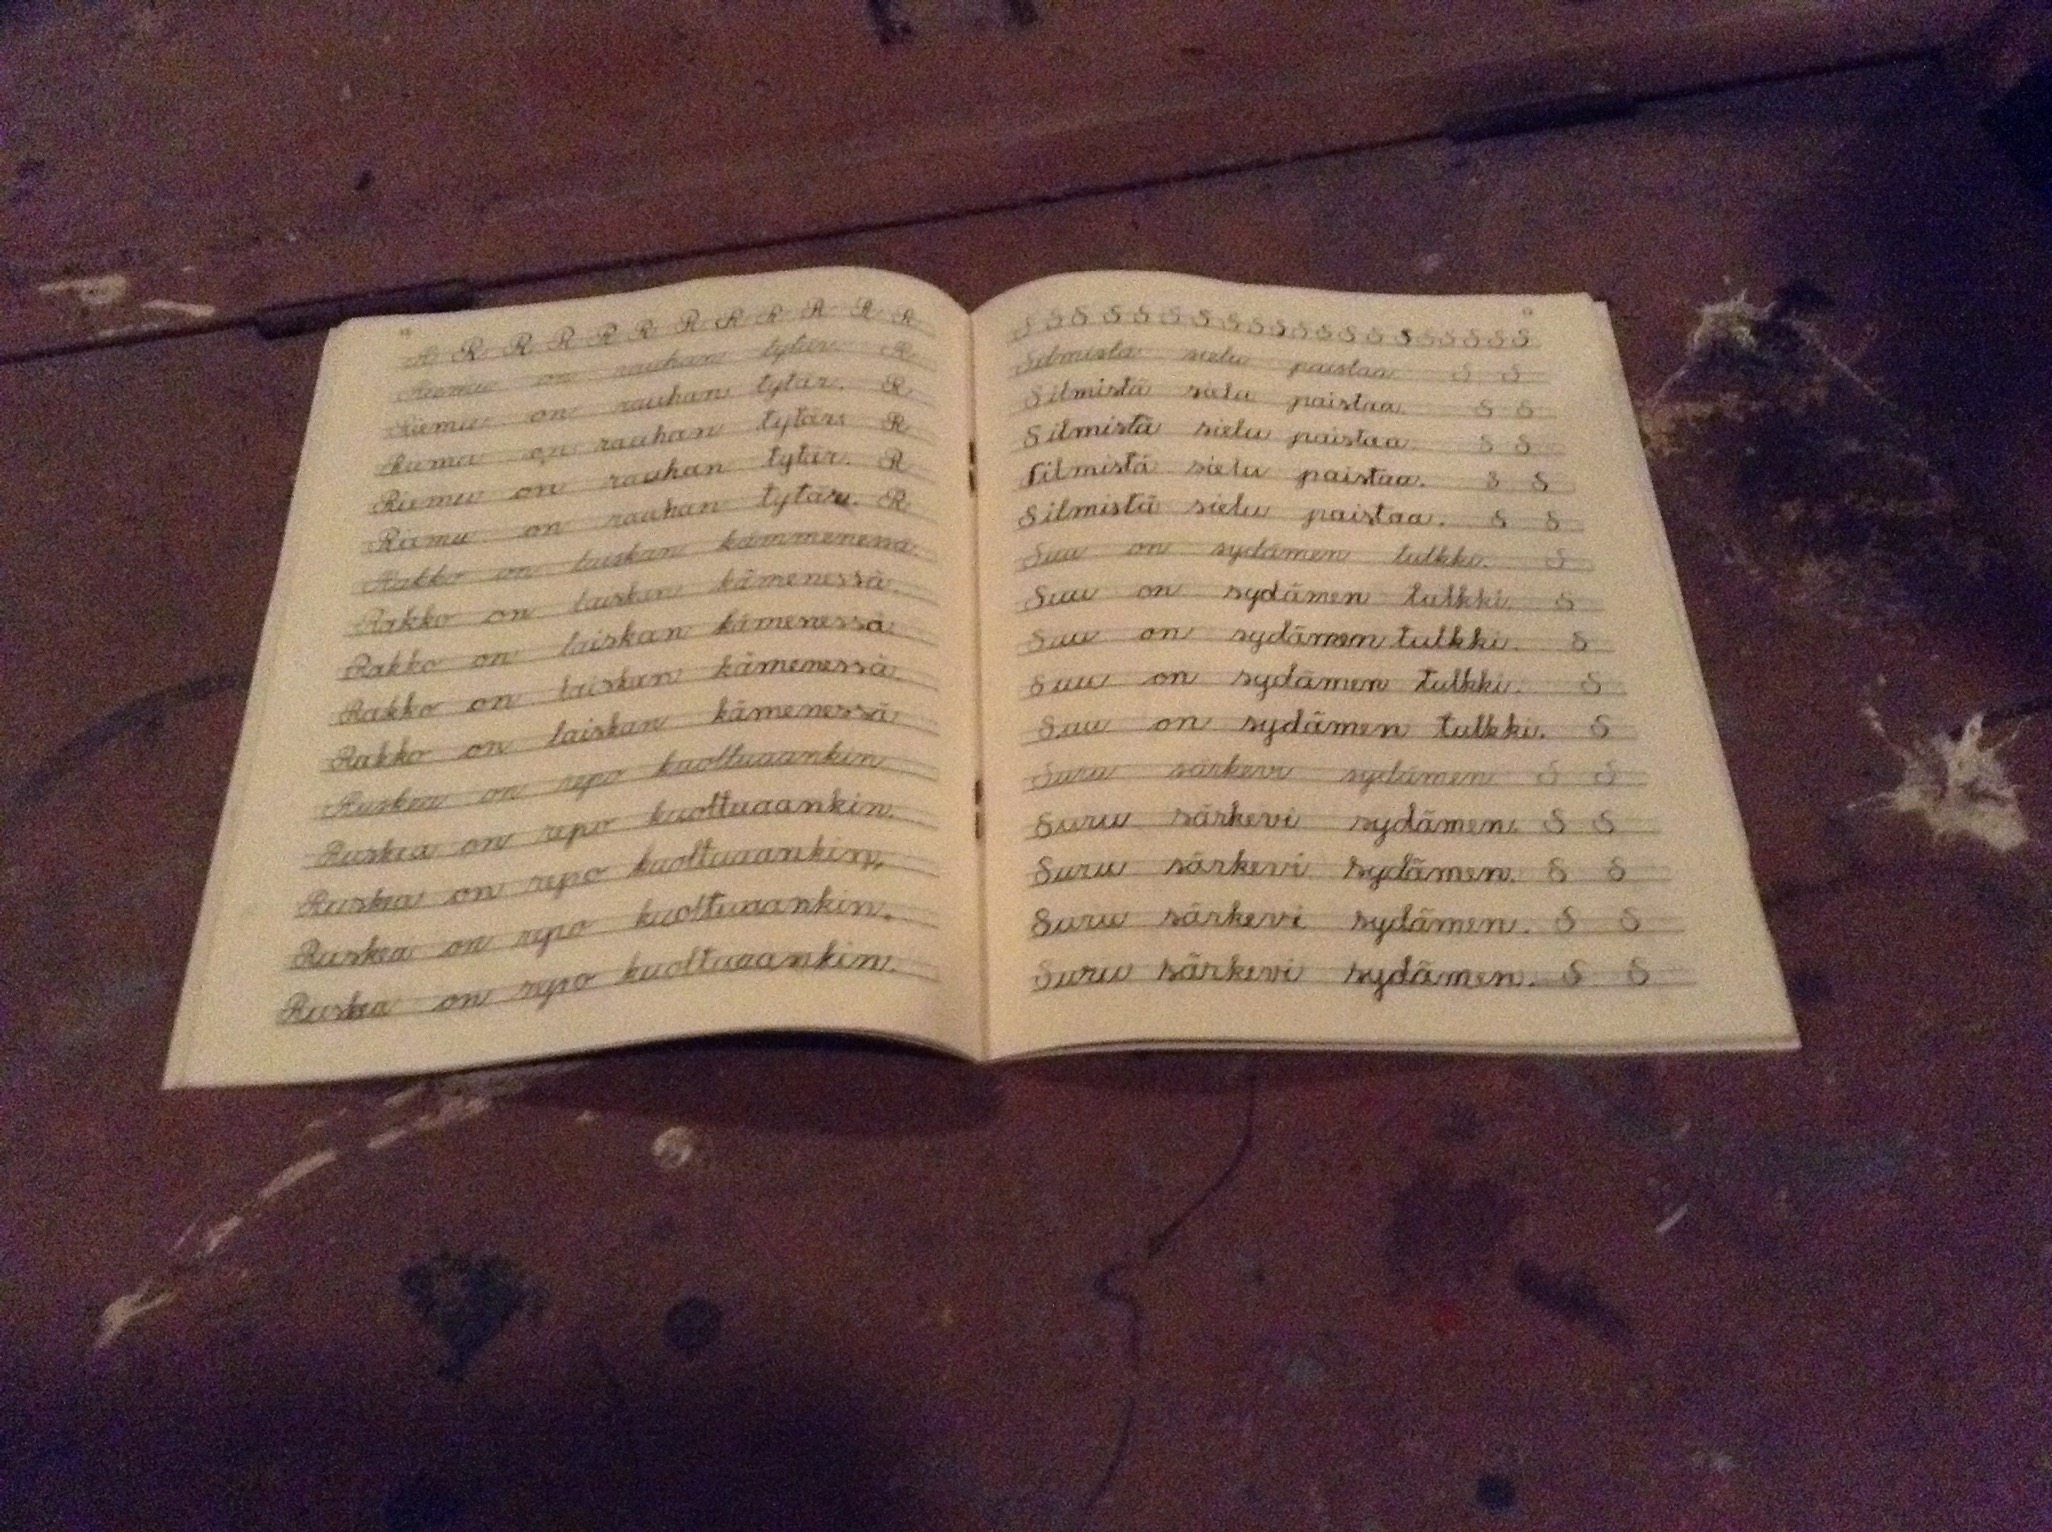 R R R R R R R R R R R R
Riemu on rauhan tytär. R
Riemu on rauhan tytär. R
Rumu on rauhan tytär. R
Riemu on rauhan tytär. R
Riemu on rauhan tytär. R
Rakko on laiskan kämmenessä.
Rakko on laiskan kämenessä.
Rakko on laiskan kämenessä.
Rakko on laiskan kämenessä.
Rakko on laiskan kämenessä
Ruskea on repo kuoltuaankin
Ruskea on repo kuoltuaankin.
Ruskea on repo kuoltuaankin.
Ruskea on repo kuoltuaankin.
Ruskea on repo kuoltuaankin.
S S S S S S S S S S S S S S S S S S S
Silmistä sielu paistaa S S
Silmistä sielu paistaa. S S
Silmistä sielu paistaa. S S
Silmistä sielu paistaa. S S
Silmistä sielu paistaa. S S
Suu on sydämen tulkki. S
Suu on sydämen tulkki. S
Suu on sydämen tulkki. S
Suu on sydämen tulkki. S
Suu on sydämen tulkki. S
Suru särkevi sydämen S S
Suru särkevi sydämen. S S
Suru särkevi sydämen. S S
Suru särkevi sydämen. S S
Suru särkevi sydämen. S S